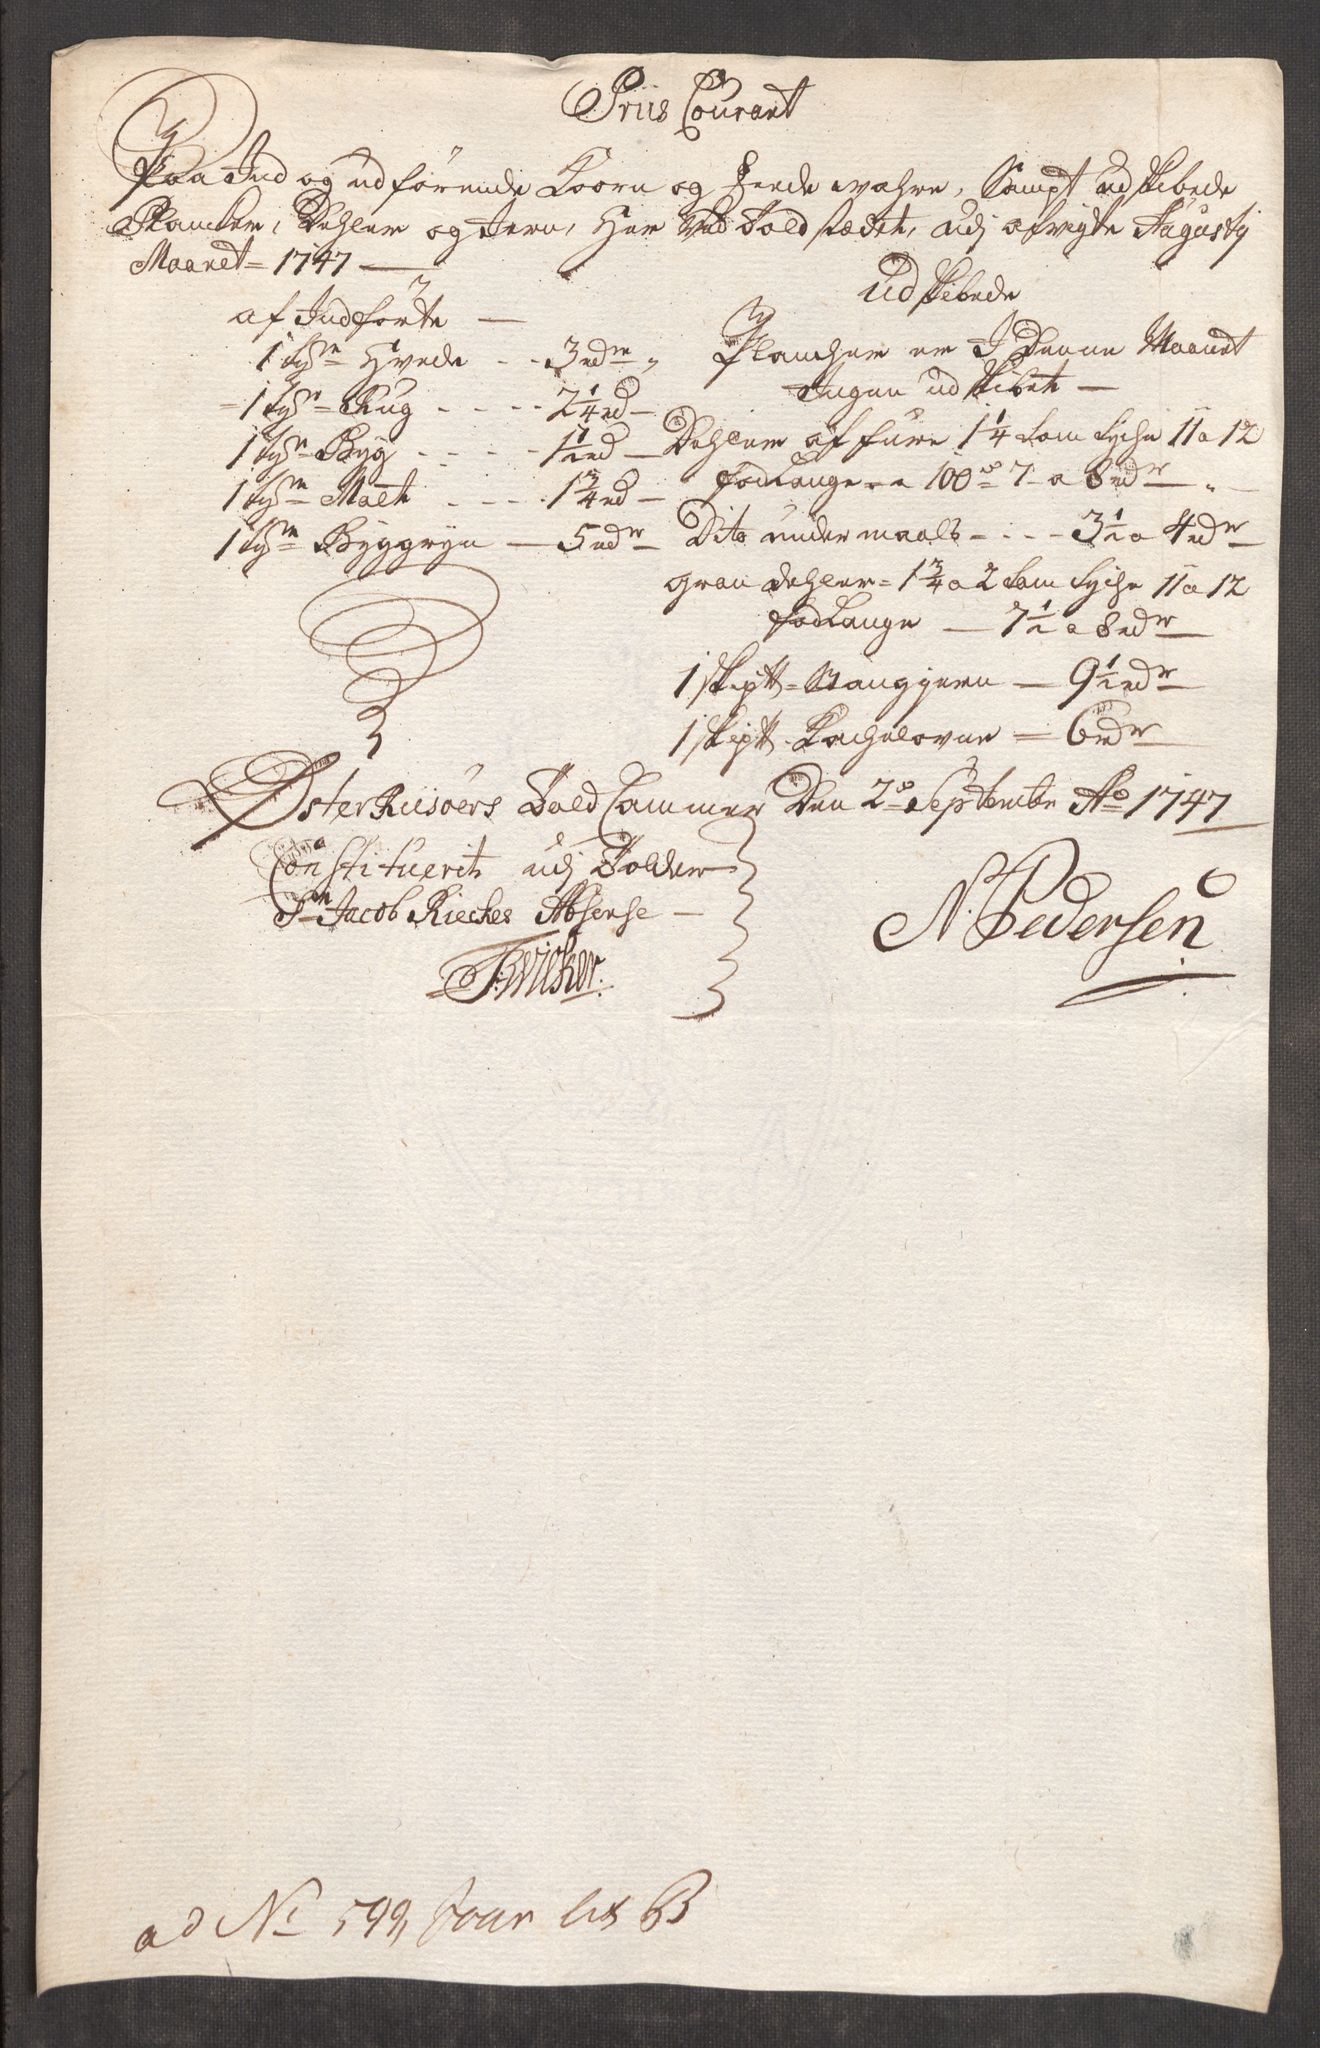 Priis Courant
Paa Ind og udförende Koorn og Feede wahre, Sampt udskibede
Plancker, Dehler og Jern, Her Ved Toldstædet, udj afvigte Augustj
Maanet = 1747
af Indförte
1 tønde Hvede - - 3 rdr
1 tønde Rug - - - - 2 1/4 rd
1 tønde Byg - - - - 1 1/2 rd
1 tønde Malt - - - - 1 3/4 rd
1 tønde Byggryn — 5 rdr
Udskibede
Plancher er I Denne Maanet
Ingen udskibet
Dehler af furu 1 1/4 tom tyche 11 a 12
fod Lange a 100de 7 a 8 rdr
Dito undermaals - - - - 3 1/2 a 4 rdr
gran Dehler = 1 3/4 a 2 tom tyche 11 a 12
fod Lange — 7 1/2 a 8 rdr
1 skipt = Stangjern — 9 1/2 rdr
1 skipt Kachelovne = 6 rdr
Öster Riisöers Told Cammer Den 2de Septembr Ao 1747
Constituerit udj Tolder
Sr Jacob Rieches Absense
N. Pedersen
F: Wicker
ad No 599 Jour lit B